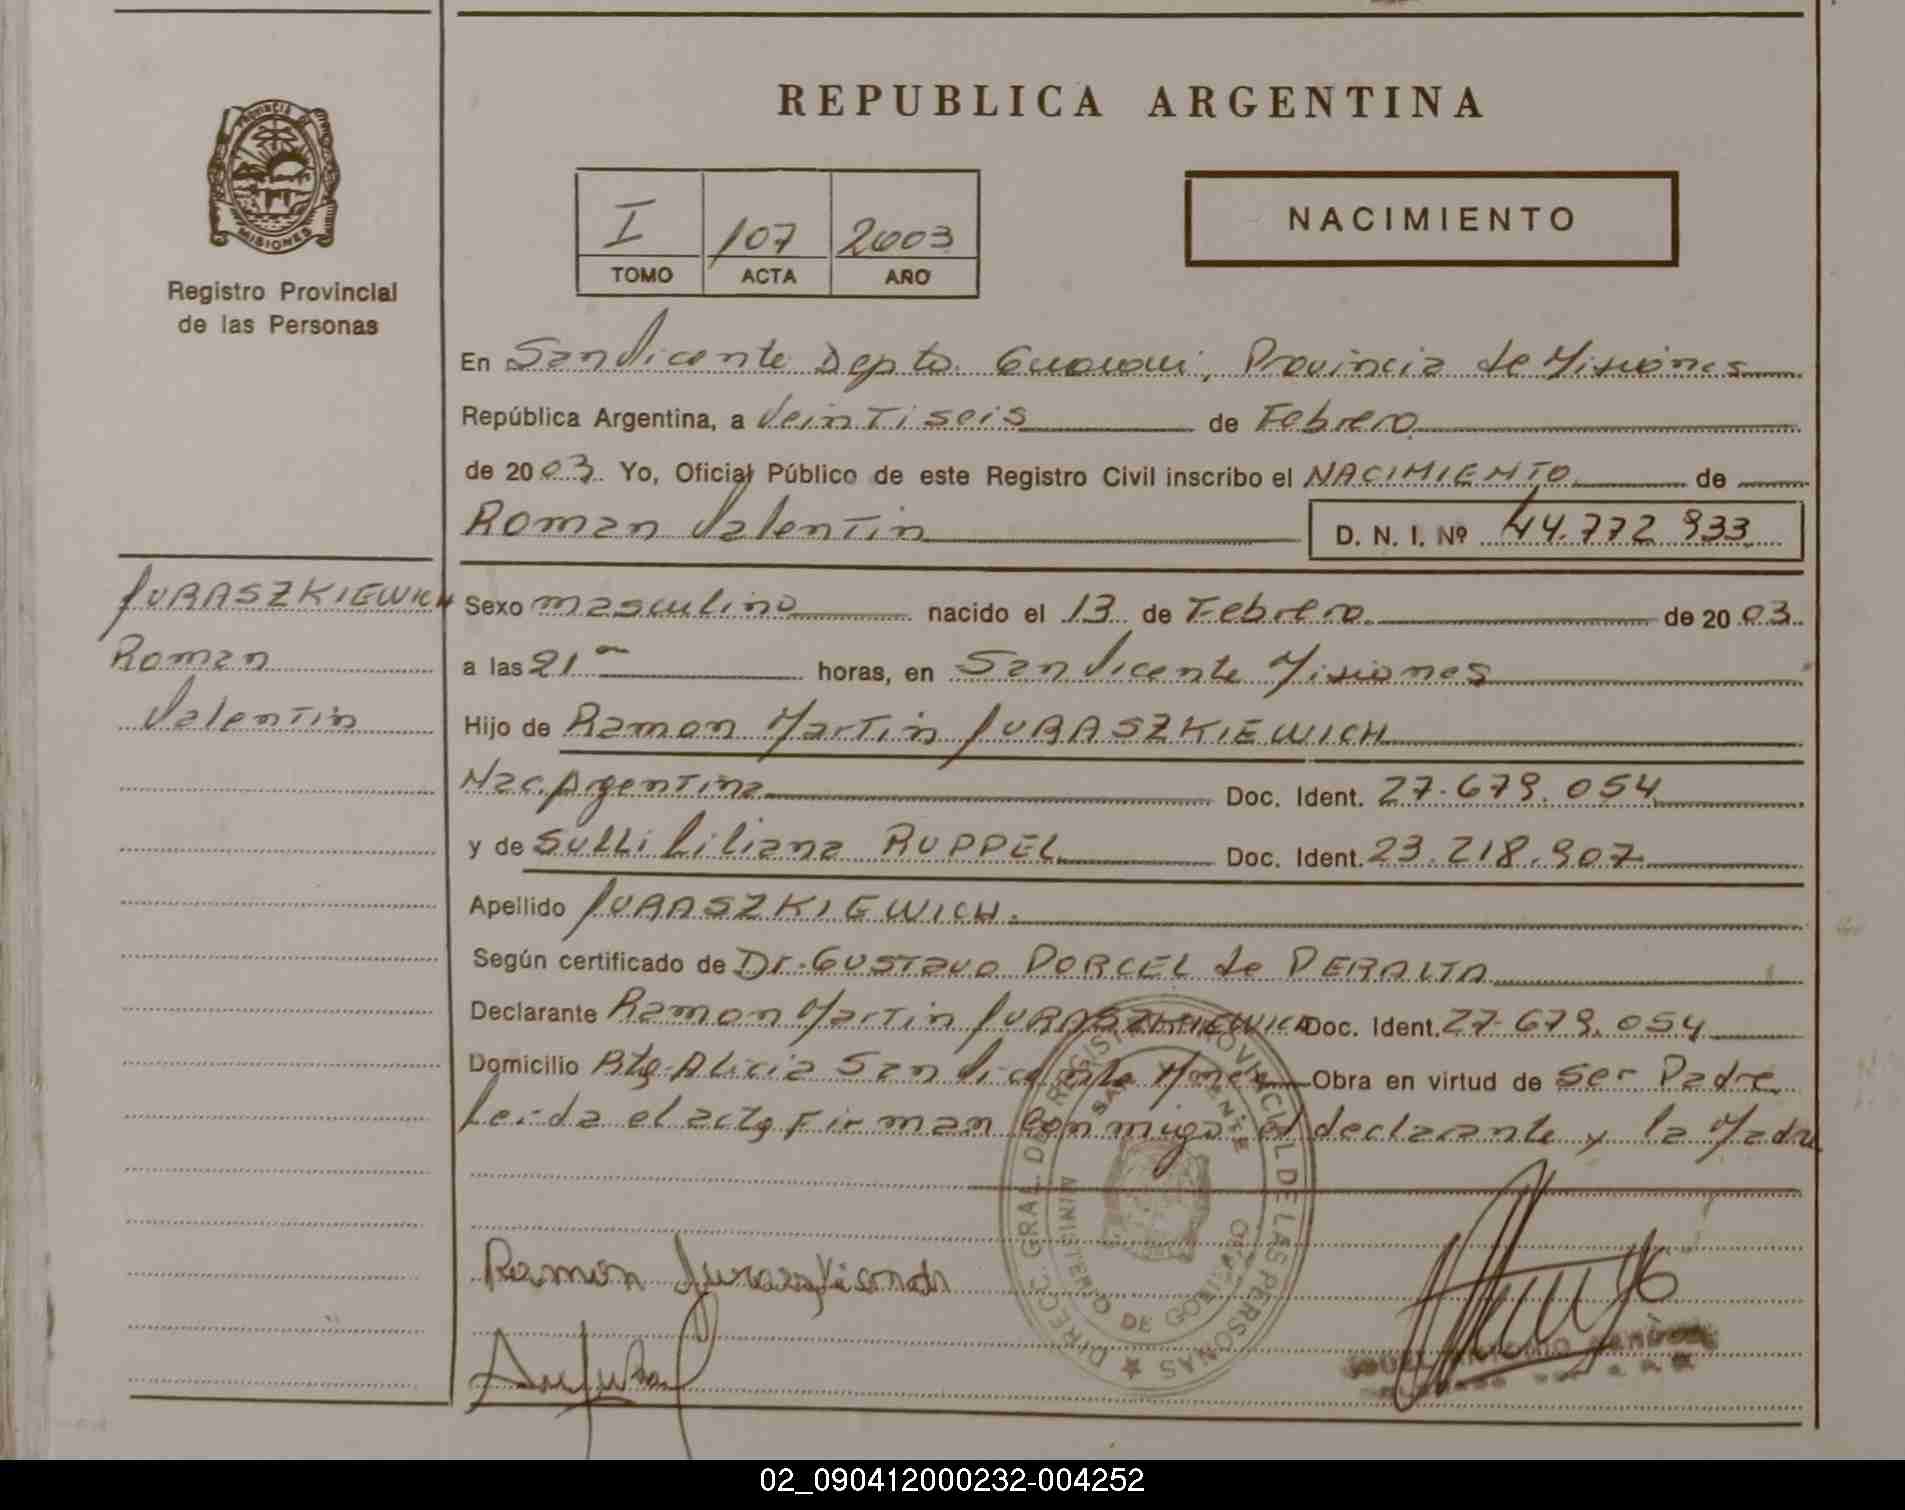 REPUBLICA ARGENTINA
PROVINCIA DE
MISIONES
Registro Provincial
de las Personas
I 107 2003
TOMO ACTA AÑO
NACIMIENTO
En San Vicente Depto. Guarani, Provincia de Misiones
República Argentina, a Veintiseis de Febrero
de 2003. Yo, Oficial Público de este Registro Civil inscribo el NACIMIENTO de
Roman Valentin D. N. I. Nº 44.772.933
JURASZKIEWICH
Roman
Valentin
Sexo masculino nacido el 13 de Febrero de 2003.
a las 21 horas, en San Vicente Misiones
Hijo de Ramon Martin JURASZKIEWICH
Nac. Argentina Doc. Ident. 27.679.054
y de Sulli Liliana RUPPEL Doc. Ident. 23.218.907
Apellido JURASZKIEWICH.
Según certificado de Dr. Gustavo DORCEL de PERALTA
Declarante Ramon Martin JURASZKIEWICH Doc. Ident. 27.679.054
Domicilio Alicia San Vicente Obra en virtud de ser Padre
Leida el acta firman conmigo el declarante y la Madre
DIRECC. GRAL. DEL REGISTRO PROVINCIAL DE LAS PERSONAS
SAN VICENTE
MINISTERIO DE GOBIERNO
Ramon Juraszkiewich
ANTONIO
02_090412000232-004252